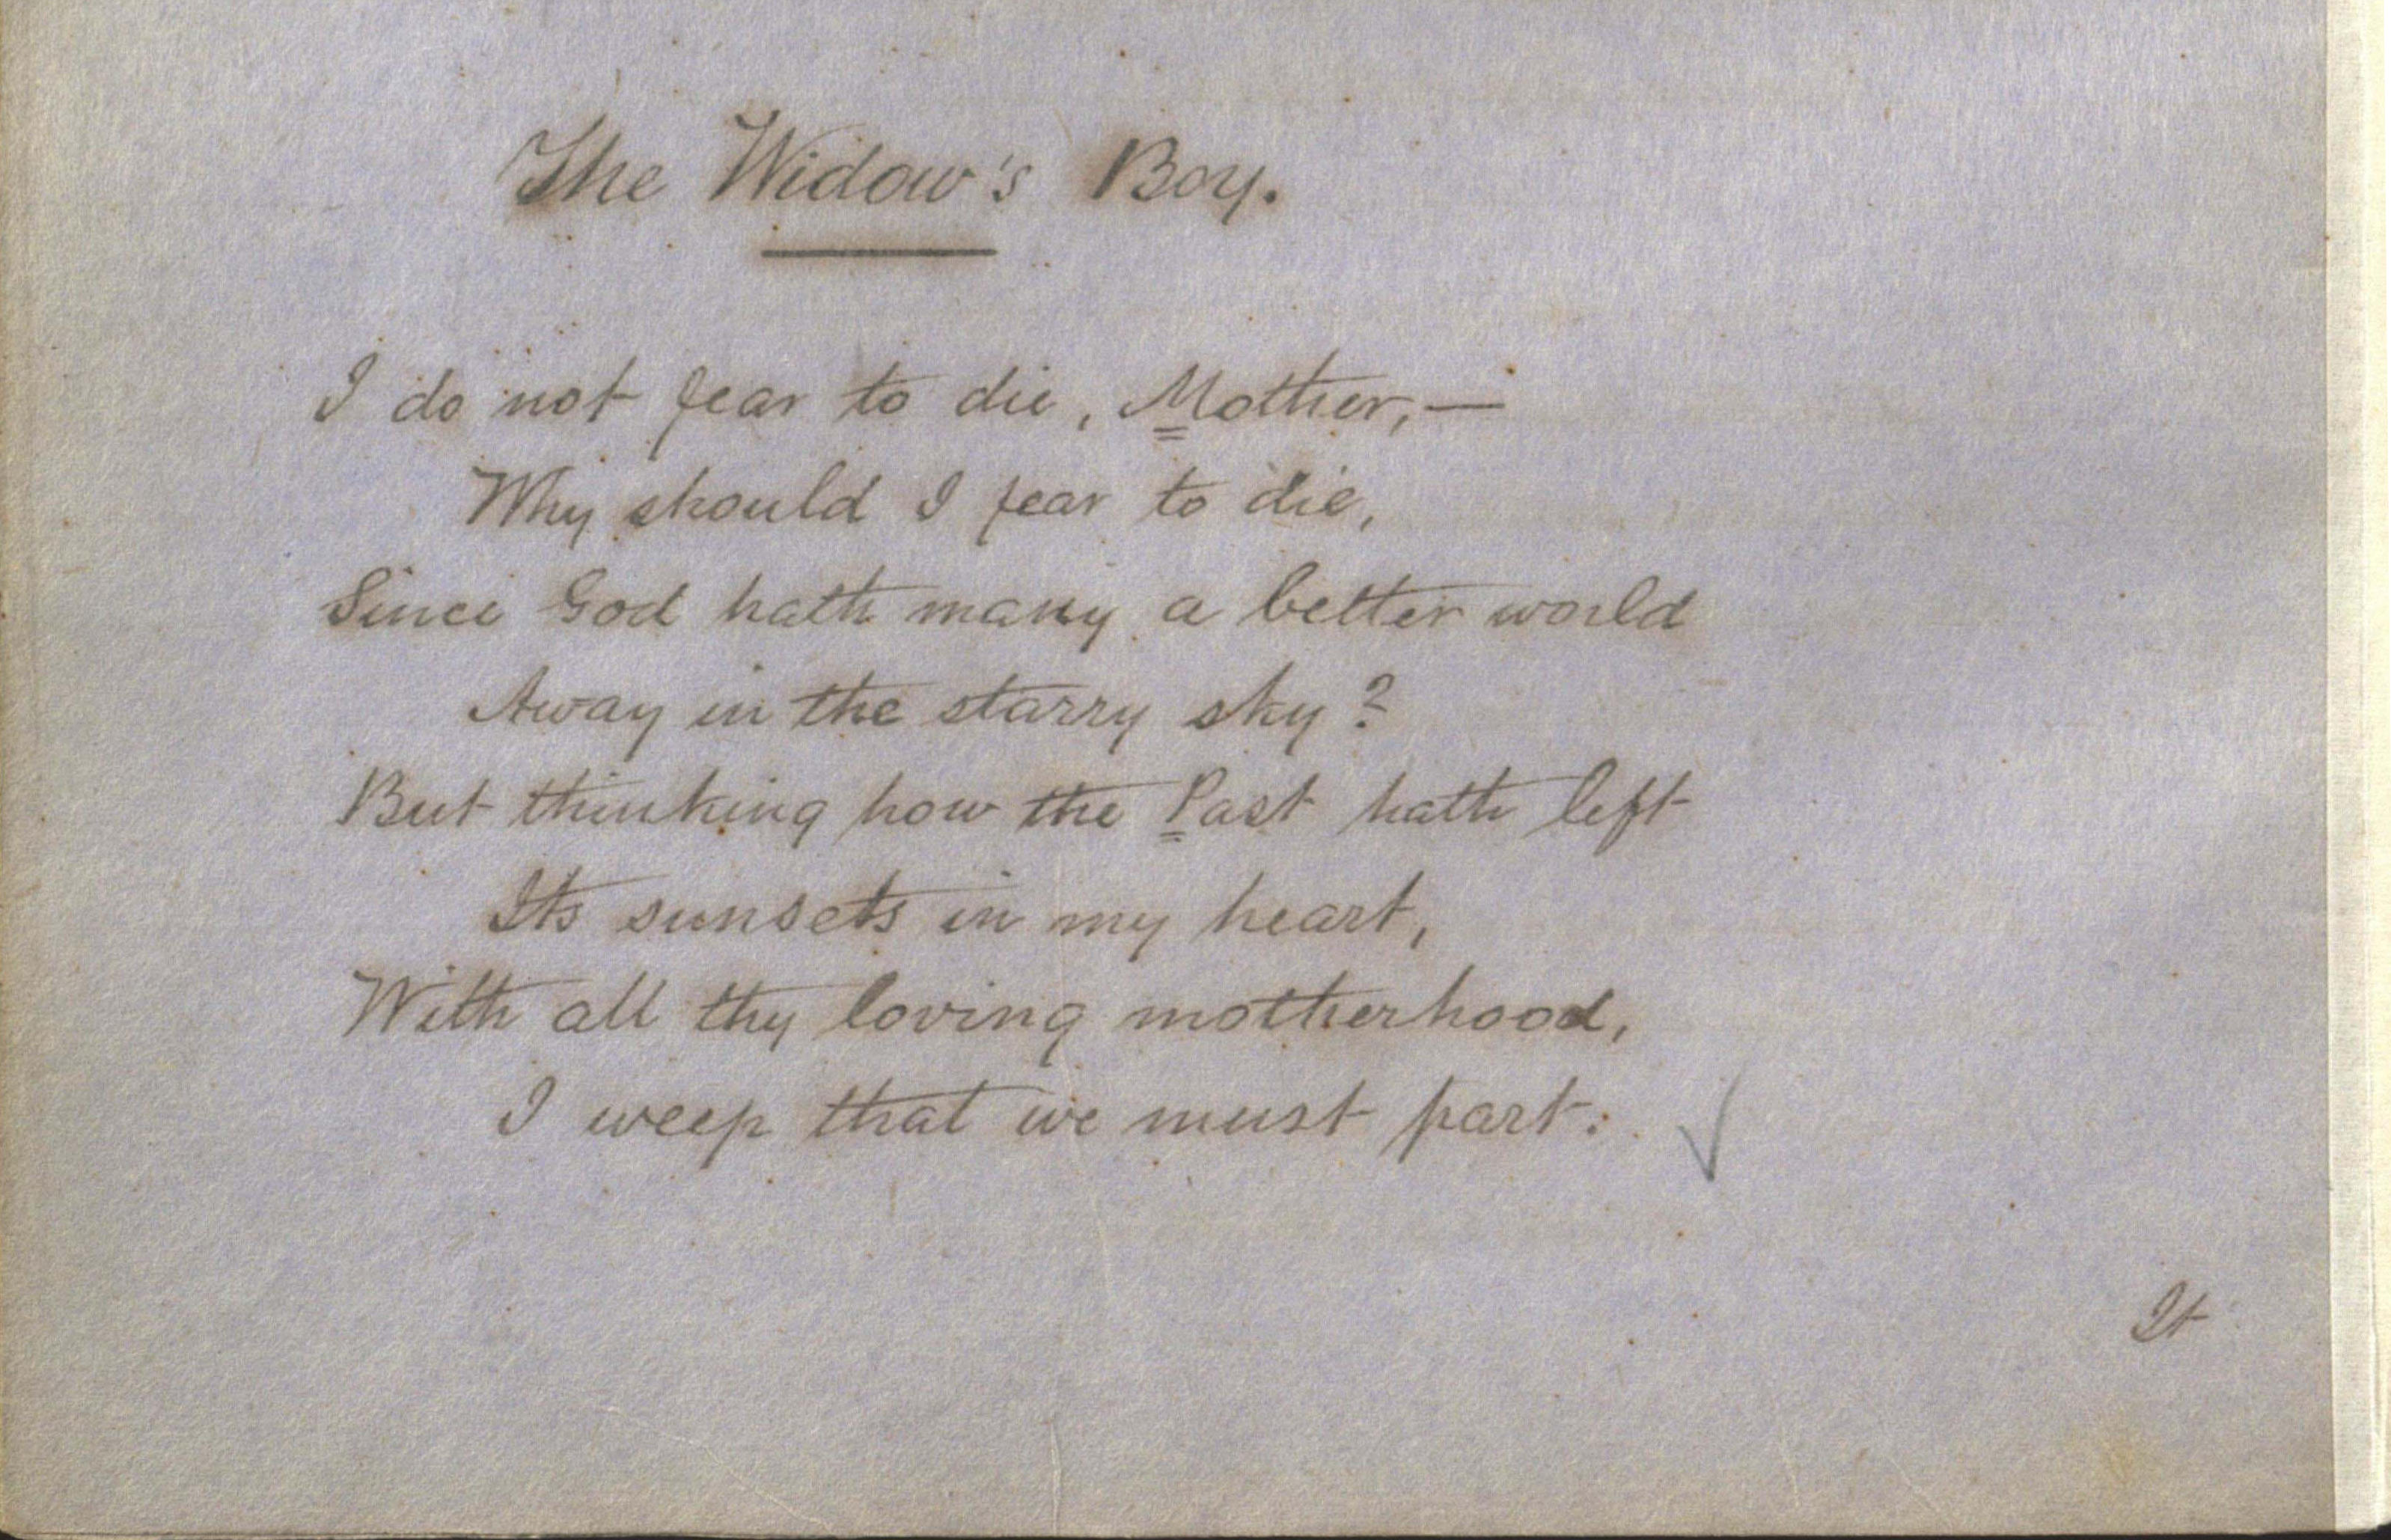 The Widow's Boy.
I do not fear to die, Mother,—
Why should I fear to die,
Since God hath many a better world
Away in the starry sky?
But thinking how the Past hath left
Its sunsets in my heart,
With all thy loving motherhood,
I weep that we must part:
It